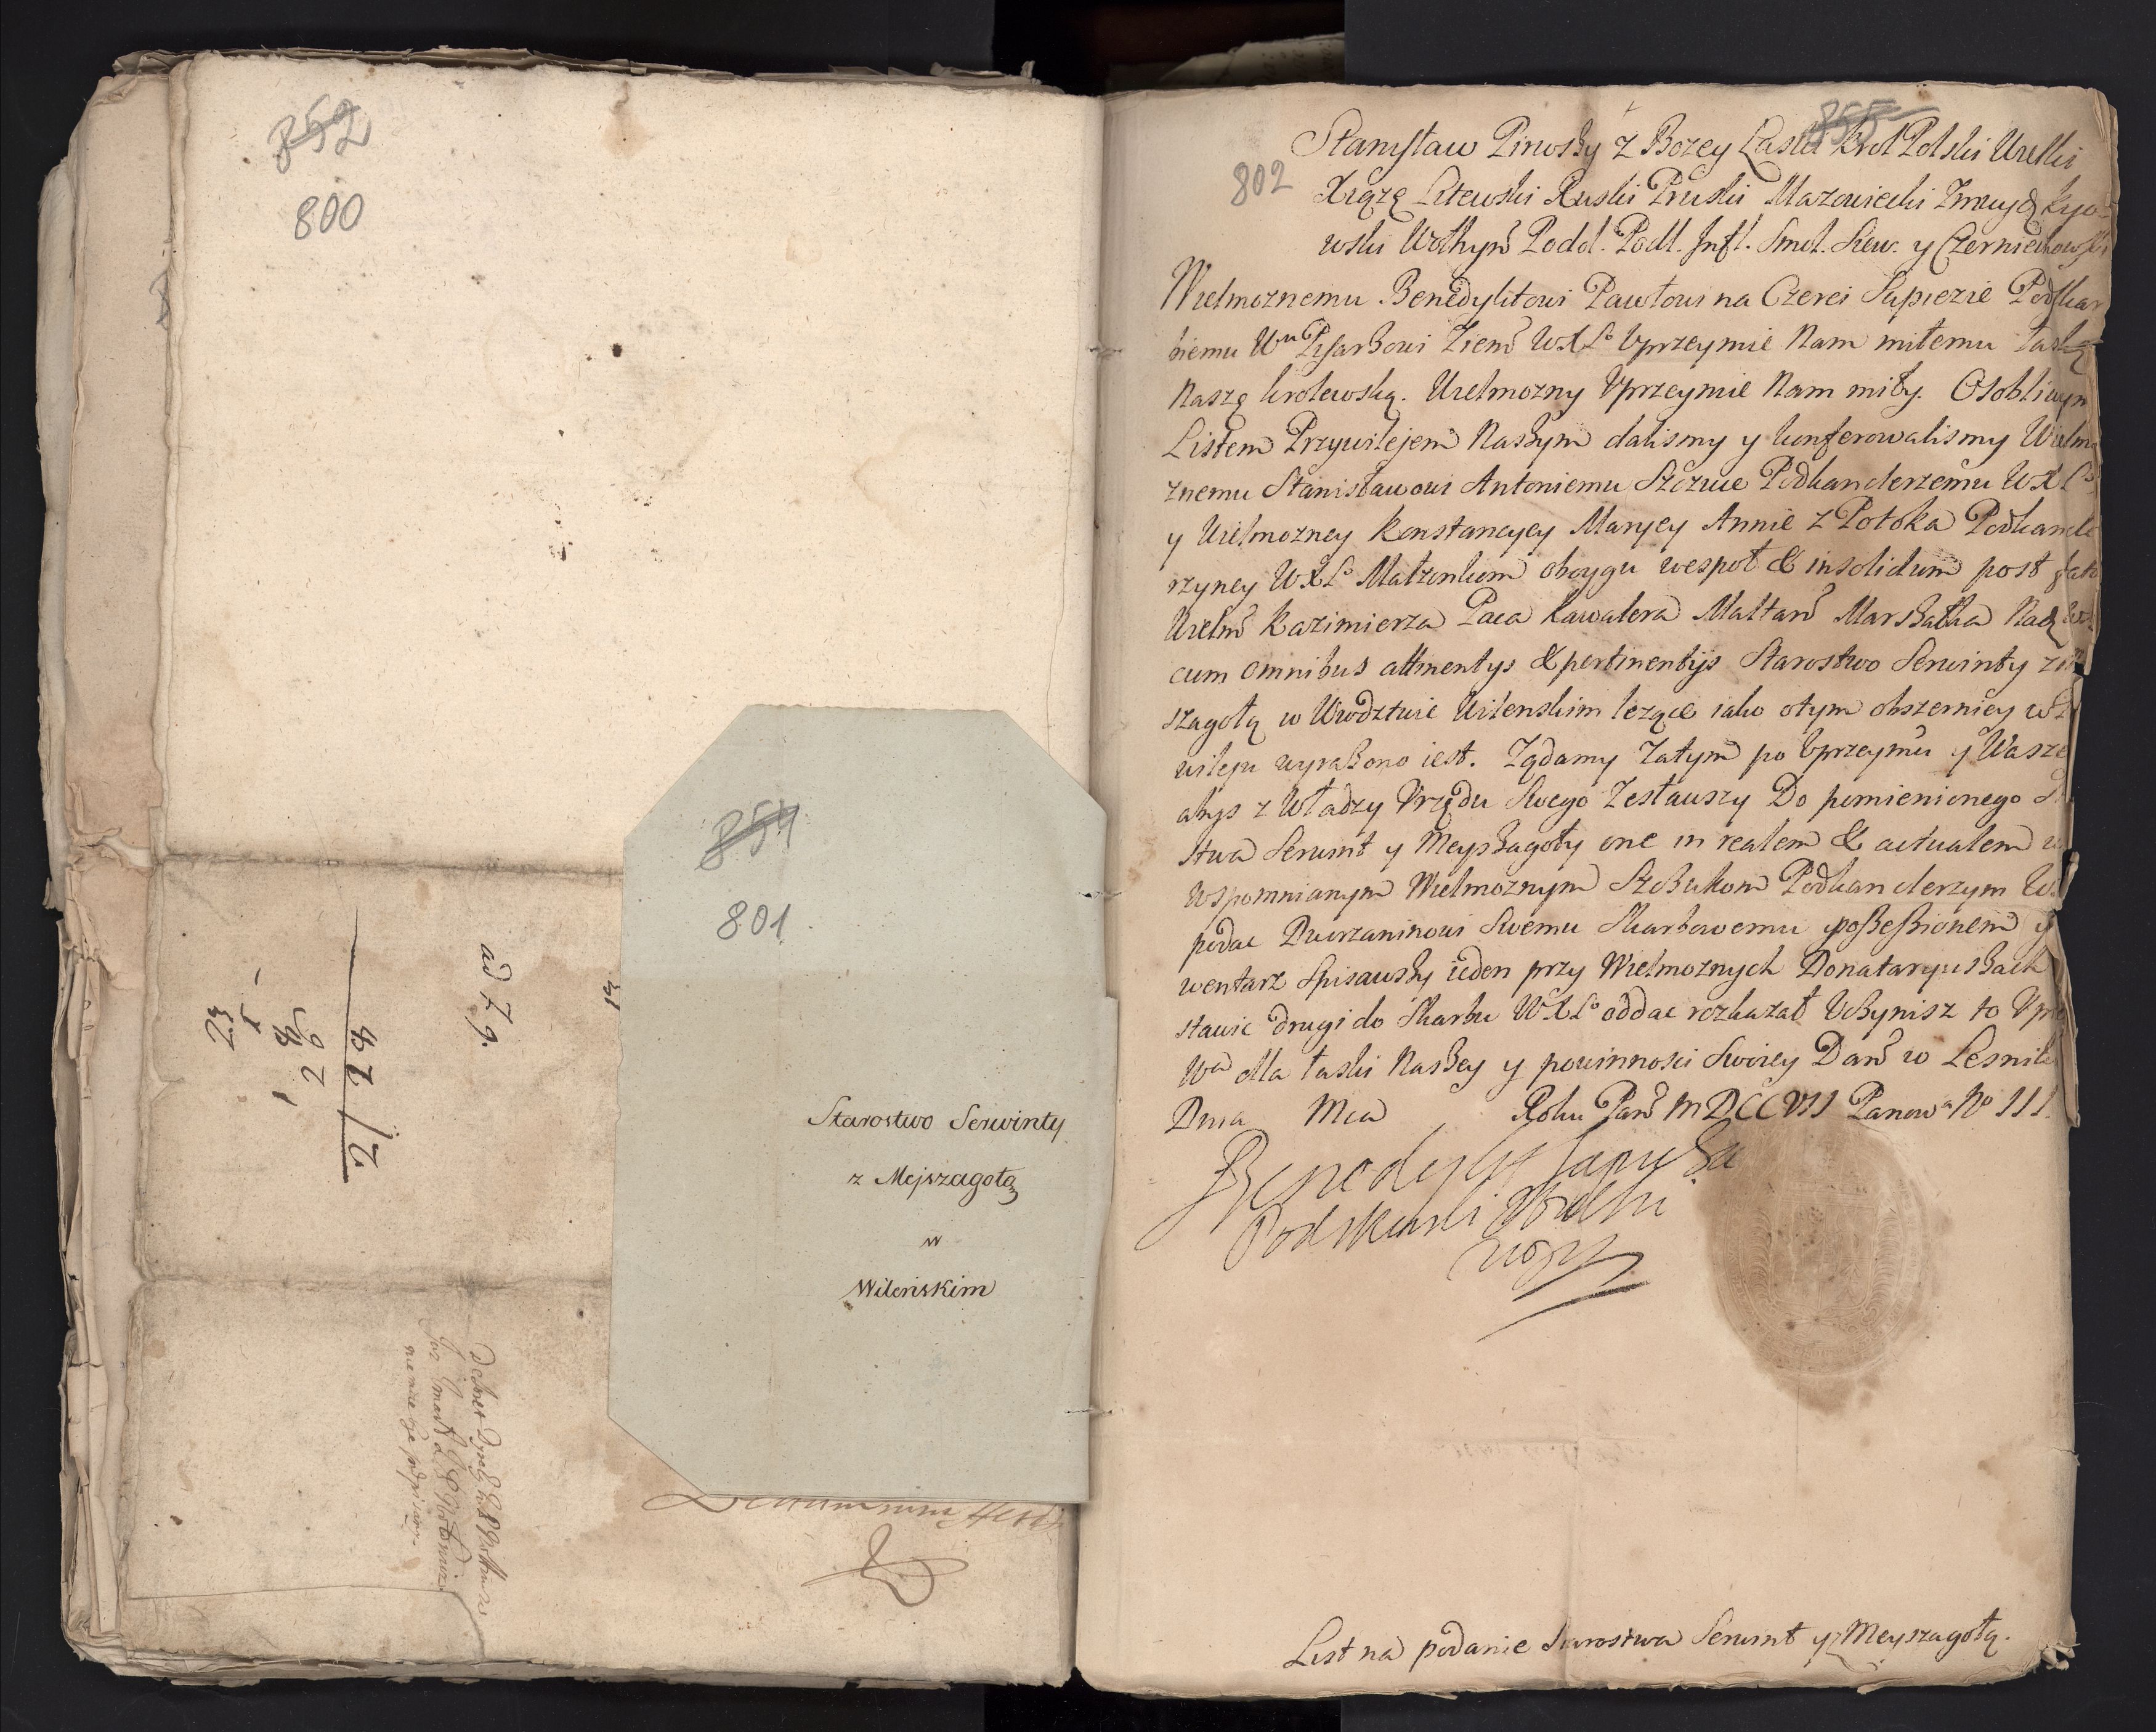 852
800
ad Z 9.
23
1
8
26
1
2/ 28
854
801
Starostwo Serwinty
z Mejszagołą
w
Wileńskim
855
802
Stanysław Pirwoszy z Bozey Łaski Krol Polski Wielki
Xiązę Litewski Ruski Pruski Mazowiecki Zmuydz Kyo-
wski Wołhyn Podol. Podl. Infl. Smol. Siew. y Czerniechowski
Wielmoznemu Benedyktowi Pawłowi na Czerei Sapiezie Podskar
biemu Wu Pisarzowi Ziem WXLo Uprzeymie Nam miłemu łaskę
Naszę krolewską. Wielmozny Uprzeymie Nam miły. Osobliwym
Listem Przywilejem Naszym dalismy y konferowalismy Wielmo
znemu Stanisławowi Antoniemu Szczuce Podkanclerzemu WXLo
y Wielmozney Konstancyey Maryey Annie z Potoka Podkancle
rzyney WXLo Małzonkom oboygu wespoł & insolidum post fata
Wielm Kazimierza Paca Kawalera Maltan Marszałka Nadw
cum omnibus attinentys & pertinentijs Starostwo Serwinty z
szagołą w Wwodztwie Wilenskim lezące iako otym obszerniey w
wileju wyrazono iest. Ządamy Zatym po Uprzeymu y Wasze
abys z Władzy Urzędu Swego Zesławszy Do pomienionego
stwa Serwint y Meyszagoły one in realem & actualem
wspomnianym Wielmoznym Szczukom Podkanclerzym W
podac Dworzaninowi Swemu Skarbowemu possessionem y
wentarz Spisawszy ieden przy Wielmoznych Donataryuszach
stawic drugi do Skarbu WXLo oddac rozkazał Uczynisz to Uprz
Wa dla łaski Naszey y powinnosci Swoiey Dan w Lesnik
Dnia Mca Roku Pan MDCCVII Panow a No III.
Benedykt Sapieha
Podskarbi Wielki
List na podanie Starostwa Serwint y z Meyszagołą.